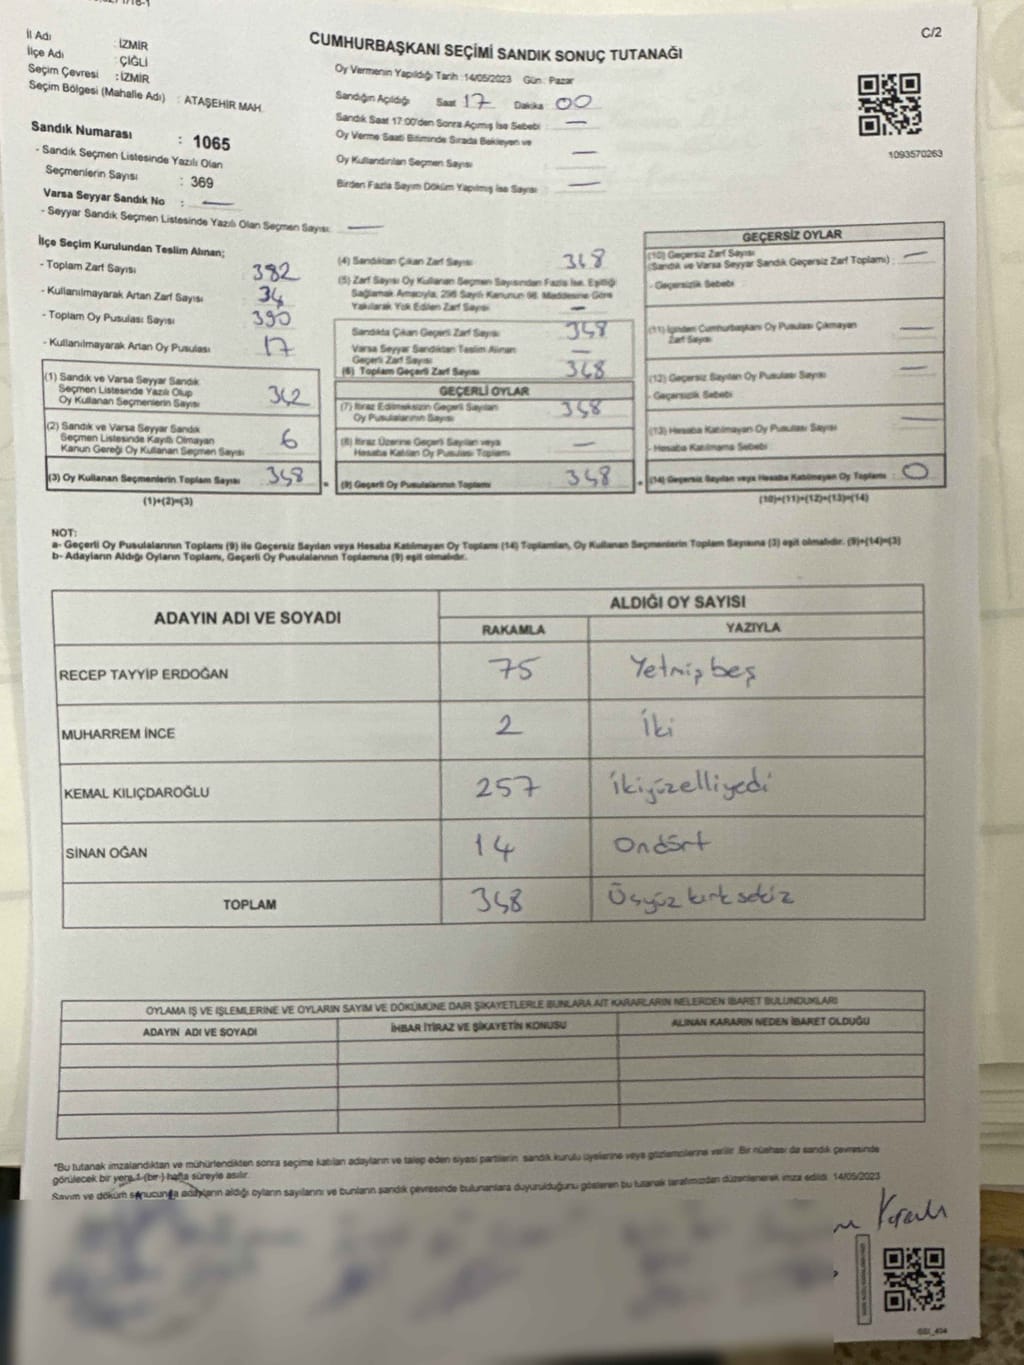 C/2
CUMHURBAŞKANI SEÇİMİ SANDIK SONUÇ TUTANAĞI
İl Adı : İZMİR
İlçe Adı : ÇİĞLİ
Seçim Çevresi : İZMİR
Seçim Bölgesi (Mahalle Adı) : ATAŞEHİR MAH.
Sandık Numarası : 1065
- Sandık Seçmen Listesinde Yazılı Olan
Seçmenlerin Sayısı : 369
Varsa Seyyar Sandık No : —
- Seyyar Sandık Seçmen Listesinde Yazılı Olan Seçmen Sayısı: —
Oy Vermenin Yapıldığı Tarih :14/05/2023 Gün : Pazar
Sandığın Açıldığı Saat 17 Dakika : 00
Sandık Saat 17:00'den Sonra Açımış İse Sebebi : —
Oy Verme Saati Bitiminde Sırada Bekleyen ve
Oy Kullandırılan Seçmen Sayısı —
Birden Fazla Sayım Döküm Yapılmış İse Sayısı : —
1093570263
İlçe Seçim Kurulundan Teslim Alınan;
- Toplam Zarf Sayısı 382
- Kullanılmayarak Artan Zarf Sayısı 34
- Toplam Oy Pusulası Sayısı 390
- Kullanılmayarak Artan Oy Pusulası 17
(1) Sandık ve Varsa Seyyar Sandık
Seçmen Listesinde Yazılı Olup
Oy Kullanan Seçmenlerin Sayısı 342
(2) Sandık ve Varsa Seyyar Sandık
Seçmen Listesinde Kayıtlı Olmayan
Kanun Gereği Oy Kullanan Seçmen Sayısı 6
(3) Oy Kullanan Seçmenlerin Toplam Sayısı 348 =
(1)+(2)=(3)
(4) Sandıktan Çıkan Zarf Sayısı 348
(5) Zarf Sayısı Oy Kullanan Seçmen Sayısından Fazla İse, Eşitliği
Sağlamak Amacıyla, 298 Sayılı Kanunun 98. Maddesine Göre
Yakılarak Yok Edilen Zarf Sayısı —
Sandıkta Çıkan Geçerli Zarf Sayısı 348
Varsa Seyyar Sandıktan Teslim Alınan
Geçerli Zarf Sayısı —
(6) Toplam Geçerli Zarf Sayısı 348
GEÇERLİ OYLAR
(7) İtiraz Edilmeksizin Geçerli Sayılan
Oy Pusulalarının Sayısı 348
(8) İtiraz Üzerine Geçerli Sayılan veya
Hesaba Katılan Oy Pusulası Toplamı —
(9) Geçerli Oy Pusulalarının Toplamı 348 +
GEÇERSİZ OYLAR
(10) Geçersiz Zarf Sayısı
(Sandık ve Varsa Seyyar Sandık Geçersiz Zarf Toplamı) : —
- Geçersizlik Sebebi :
(11) İçinden Cumhurbaşkanı Oy Pusulası Çıkmayan
Zarf Sayısı —
(12) Geçersiz Sayılan Oy Pusulası Sayısı —
- Geçersizlik Sebebi :
(13) Hesaba Katılmayan Oy Pusulası Sayısı —
- Hesaba Katılmama Sebebi :
(14) Geçersiz Sayılan veya Hesaba Katılmayan Oy Toplamı : 0
(10)+(11)+(12)+(13)=(14)
NOT:
a- Geçerli Oy Pusulalarının Toplamı (9) ile Geçersiz Sayılan veya Hesaba Katılmayan Oy Toplamı (14) Toplamları, Oy Kullanan Seçmenlerin Toplam Sayısına (3) eşit olmalıdır. (9)+(14)=(3)
b- Adayların Aldığı Oyların Toplamı, Geçerli Oy Pusulalarının Toplamına (9) eşit olmalıdır.
ADAYIN ADI VE SOYADI ALDIĞI OY SAYISI
RAKAMLA YAZIYLA
RECEP TAYYİP ERDOĞAN 75 Yetmişbeş
MUHARREM İNCE 2 İki
KEMAL KILIÇDAROĞLU 257 İkiyüzelliyedi
SİNAN OĞAN 14 Ondört
TOPLAM 348 Üçyüz kırk sekiz
OYLAMA İŞ VE İŞLEMLERİNE VE OYLARIN SAYIM VE DÖKÜMÜNE DAİR ŞİKAYETLERLE BUNLARA AİT KARARLARIN NELERDEN İBARET BULUNDUKLARI
ADAYIN ADI VE SOYADI İHBAR İTİRAZ VE ŞİKAYETİN KONUSU ALINAN KARARIN NEDEN İBARET OLDUĞU
*Bu tutanak imzalandıktan ve mühürlendikten sonra seçime katılan adayların ve talep eden siyasi partilerin sandık kurulu üyelerine veya gözlemcilerine verilir. Bir nüshası da sandık çevresinde
görülecek bir yere 1 (bir ) hafta süreyle asılır.
Sayım ve döküm sonucunda adayların aldığı oyların sayılarını ve bunların sandık çevresinde bulunanlara duyurulduğunu gösteren bu tutanak tarafımızdan düzenlenerek imza edildi. 14/05/2023